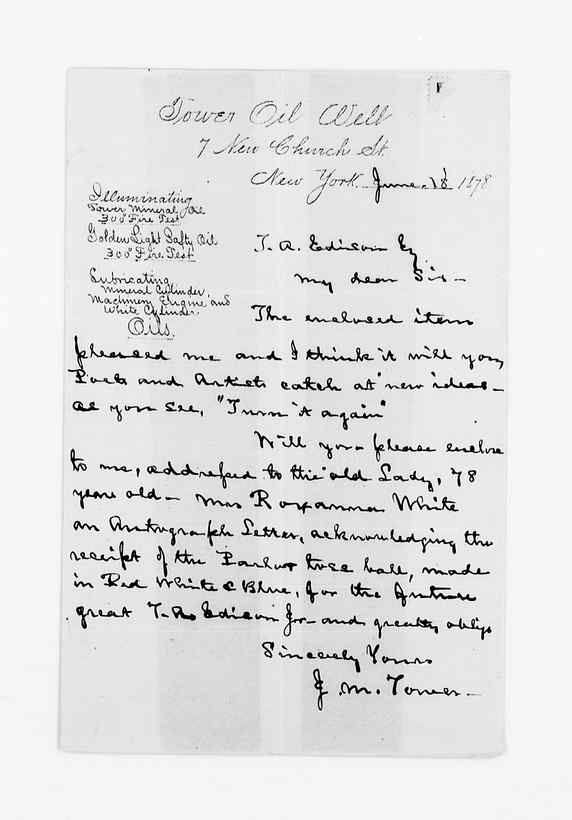 F
Tower Oil Well
7 New Church St.
New York. June. 18 1878
Illuminating
Tower Mineral Oil
300° Fire Test
Golden Light Safty Oil
300° Fire Test
Lubricating
Mineral Cylinder,
Machinery Engine and
White Cylinder
Oils.
T. A. Edison Esq
My dear Sir —
The enclosed item
pleased me and I think it will you,
Poets and Artists catch at new ideas —
as you see, "Turn it again"
Will you please enclose
to me, addressed to the old Lady, 78
years old — Mrs Roxanna White
an Autograph Letter, acknowledging the
receipt of the Parlor toss ball, made
in Red White & Blue, for the future
great T. A. Edison Jr — and greatly oblige
Sincerely Yours
J. M. Tower —